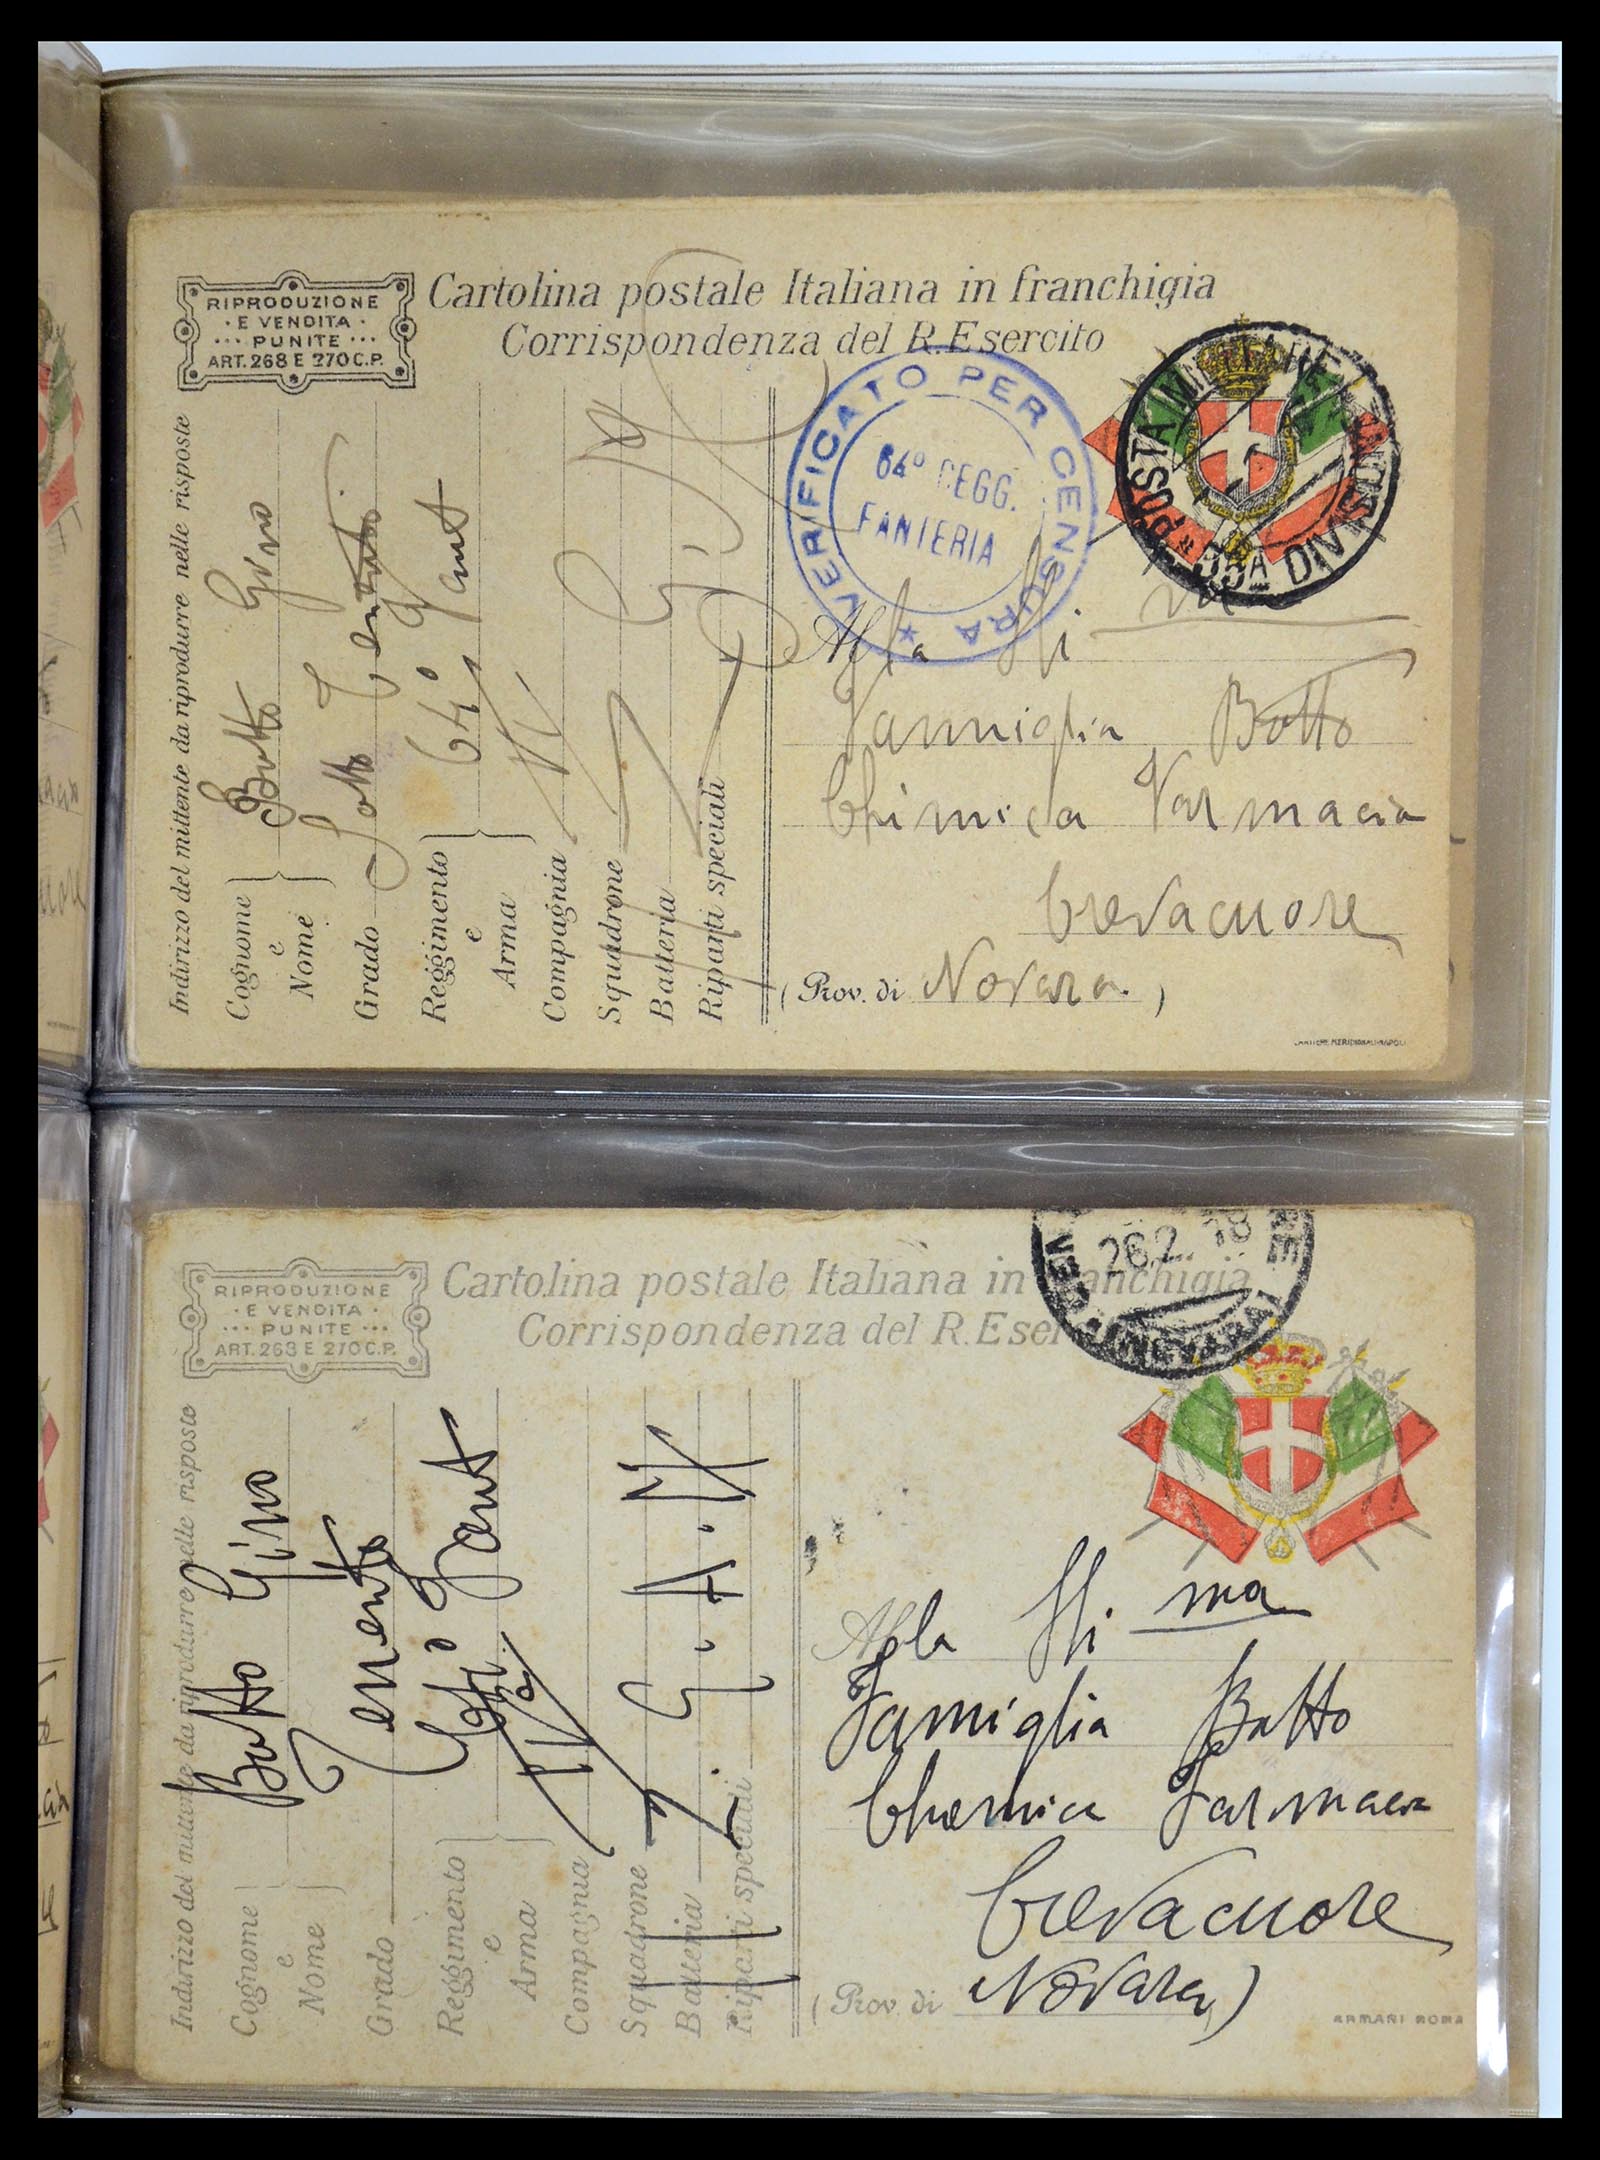 RIPRODUZIONE
· E VENDITA ·
··· PUNITE ···
ART. 268 E 270 C.P.
Cartolina postale Italiana in franchigia
Corrispondenza del R. Esercito
VERIFICATO PER CENSURA
64° REGG.
FANTERIA
POSTA MILITARE
DIVISIONE
Indirizzo del mittente da riprodurre nelle risposte
Cognome e Nome Botto Gino
Grado Sotto Tenente
Reggimento e Arma 64° Fant
Compagnia
Squadrone
Batteria
Riparti speciali
Alla
Famiglia Botto
Chimica Farmacia
Crevacuore
(Prov. di Novara)
CARTIERE MERIDIONALI-NAPOLI
RIPRODUZIONE
· E VENDITA ·
··· PUNITE ···
ART. 268 E 270 C.P.
Cartolina postale Italiana in franchigia
Corrispondenza del R. Esercito
26.2 18
Indirizzo del mittente da riprodurre nelle risposte
Cognome e Nome Botto Gino
Grado Tenente
Reggimento e Arma 64° Fant
Compagnia
Squadrone
Batteria
Riparti speciali
Alla
Famiglia Botto
Chimica Farmacia
Crevacuore
(Prov. di Novara)
ARMANI ROMA